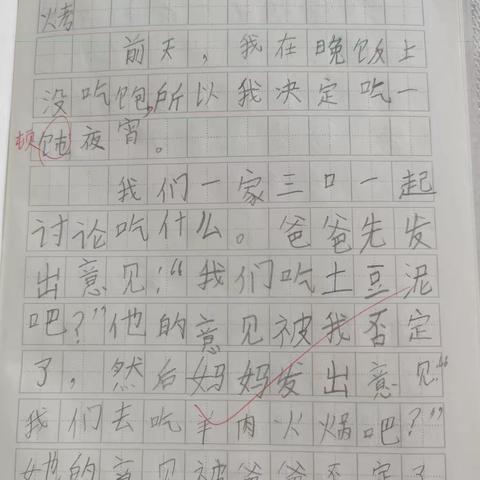 火考
前天，我在晚饭上
没吃饱，所以我决定吃一
顿饨夜宵。
我们一家三口一起
讨论吃什么。爸爸先发
出意见：“我们吃土豆泥
吧？”他的意见被我否定
了，然后妈妈发出意见“
我们去吃羊肉火锅吧？”
她的意见被爸爸否定了